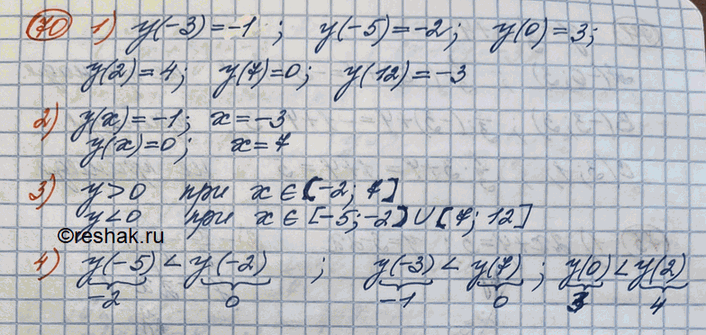 70 1) y(-3)=-1; y(-5)=-2; y(0)=3;
y(2)=4; y(7)=0; y(12)=-3
2) y(x)=-1; x=-3
y(x)=0; x=7
3) y>0 при x∈[-2; 7]
y<0 при x∈[-5;-2)∪[7; 12]
©reshak.ru
4) y(-5)<y(-2) ; y(-3)<y(7) ; y(0)<y(2)
-2 0 -1 0 3 4